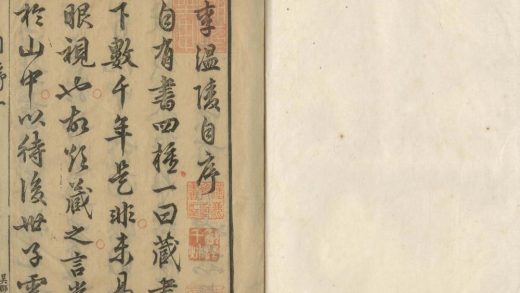 李温陵自序
自有書四種一曰藏書
下數千年是非未易
眼視也故欲藏之言當
於山中以待後世子雲